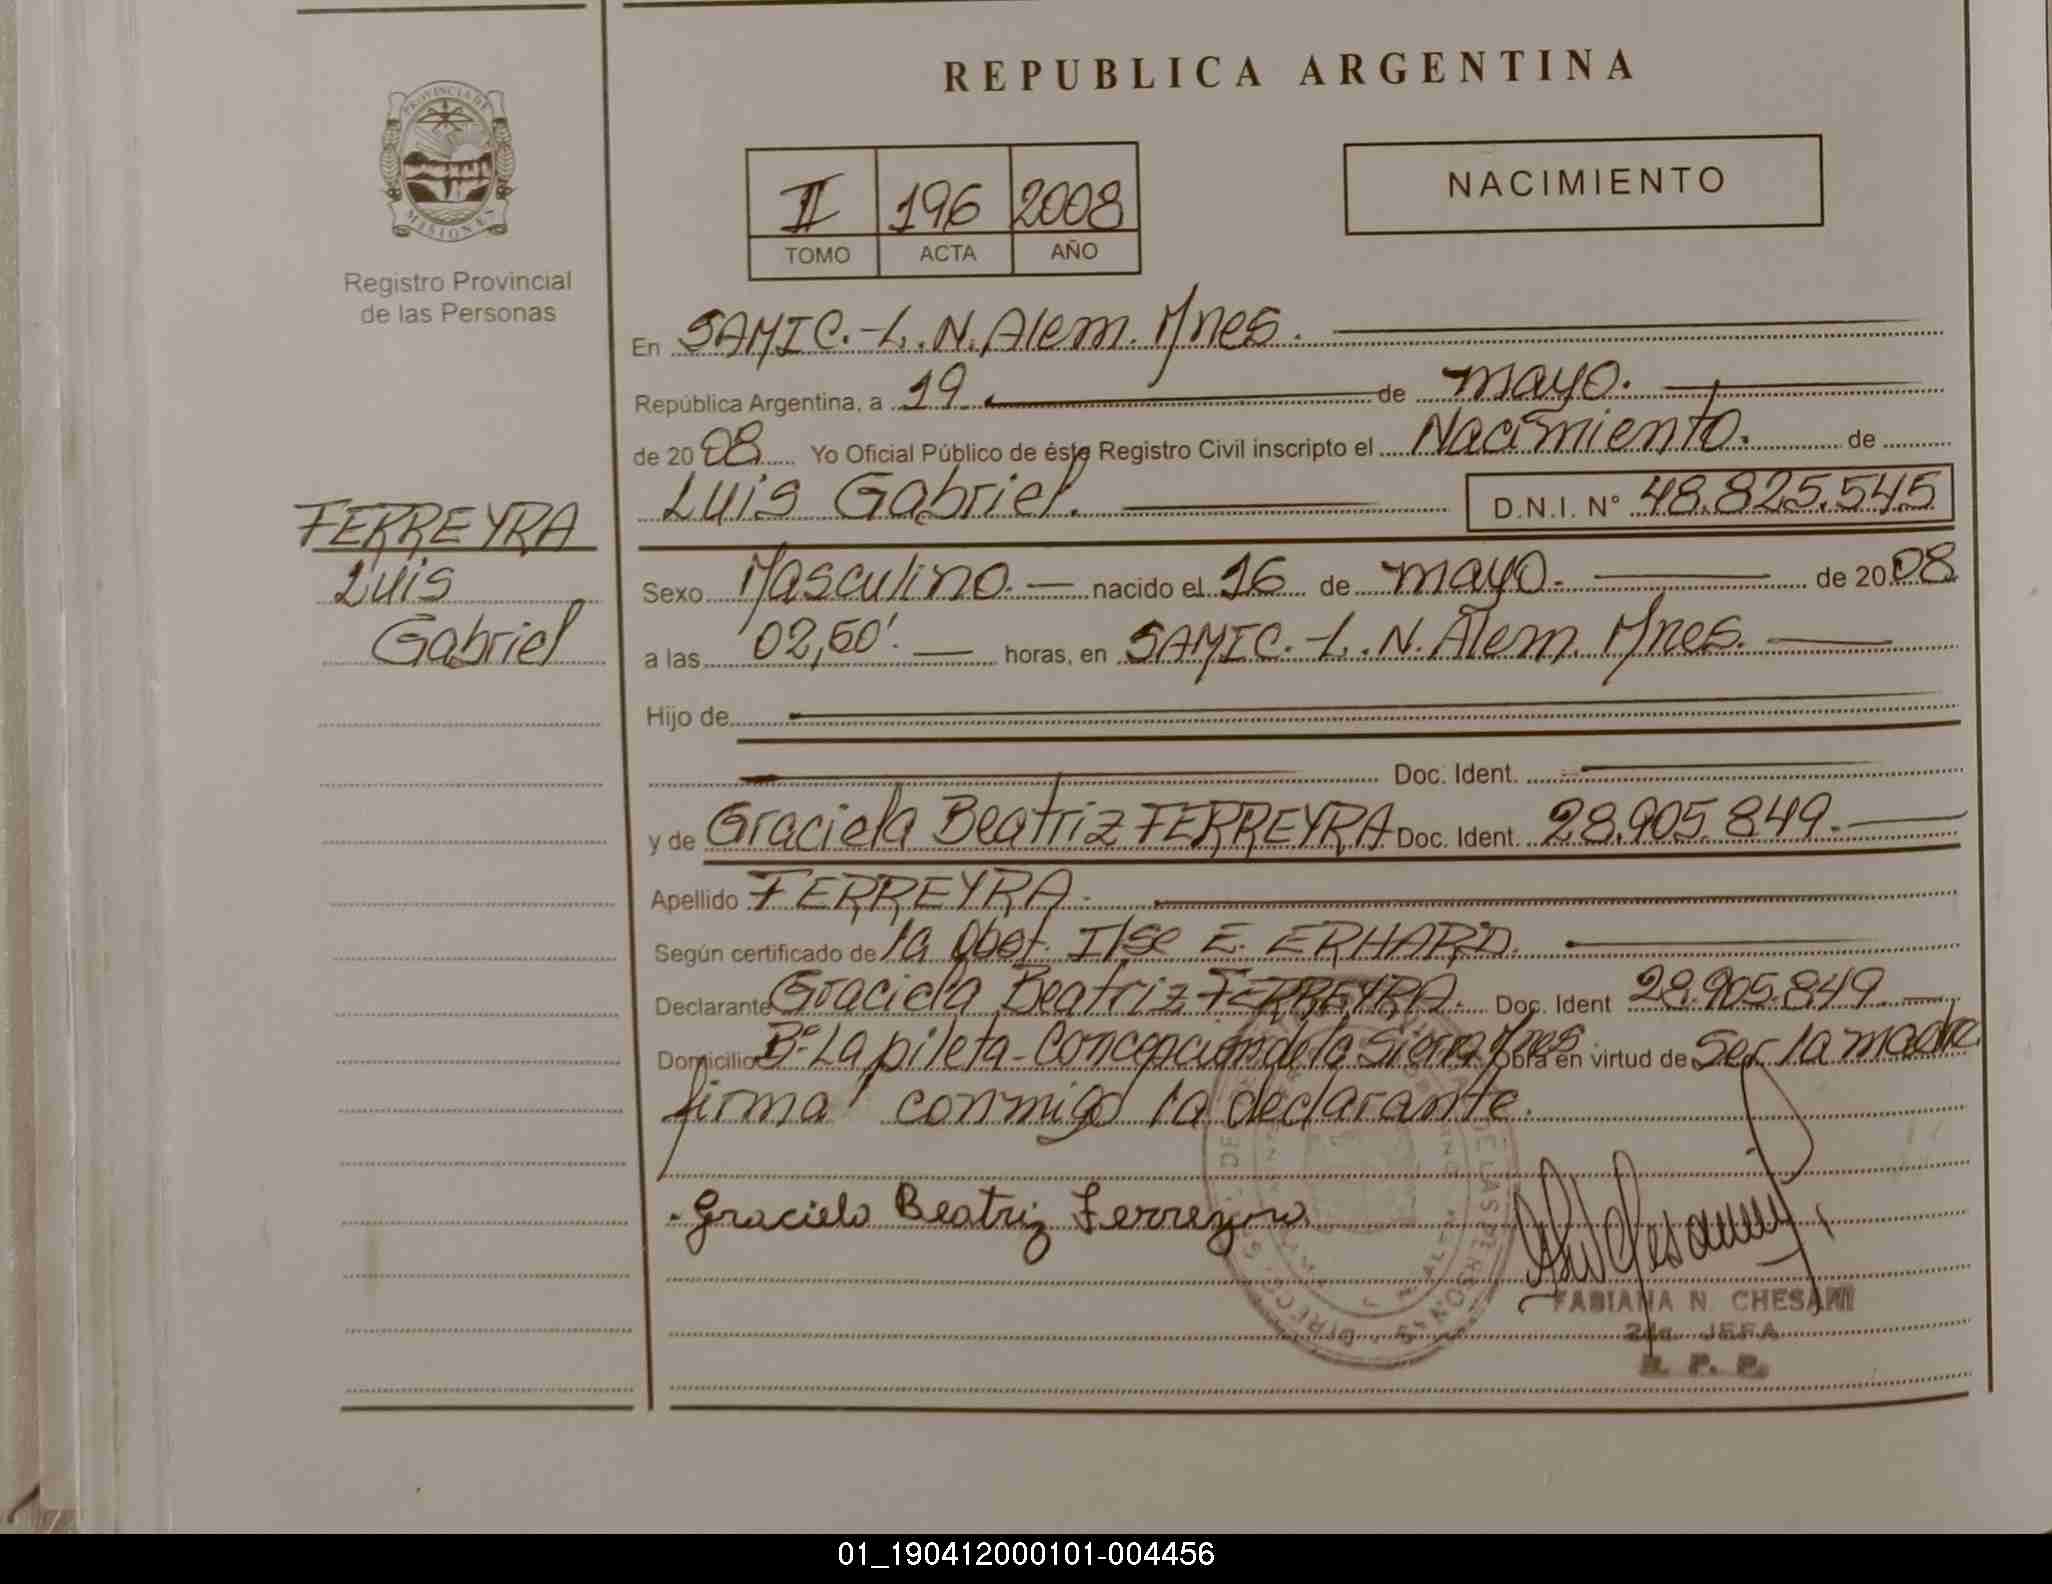 REPUBLICA ARGENTINA
PROVINCIA DE MISIONES
Registro Provincial
de las Personas
II 196 2008
TOMO ACTA AÑO
NACIMIENTO
En SAMIC.-L.N.Alem. Mnes.
República Argentina, a 19 de mayo.
de 2008 Yo Oficial Público de éste Registro Civil inscripto el Nacimiento. de
Luis Gabriel. D.N.I. Nº 48.825.545
FERREYRA
Luis
Gabriel
Sexo Masculino. nacido el 16 de mayo. de 2008
a las 02,50'. horas, en SAMIC.-L.N.Alem. Mnes.
Hijo de
Doc. Ident.
y de Graciela Beatriz FERREYRA Doc. Ident. 28.905.849.
Apellido FERREYRA.
Según certificado de la Obst. Ilse E. ERHARD.
Declarante Graciela Beatriz FERREYRA. Doc. Ident 28.905.849.
Domicilio Bº La pileta-Concepción de la Sierra Mnes. Obra en virtud de Ser la madre
firma conmigo la declarante.
Graciela Beatriz Ferreyra
FABIANA N. CHESANI
2da. JEFA
R. P. P.
01_190412000101-004456